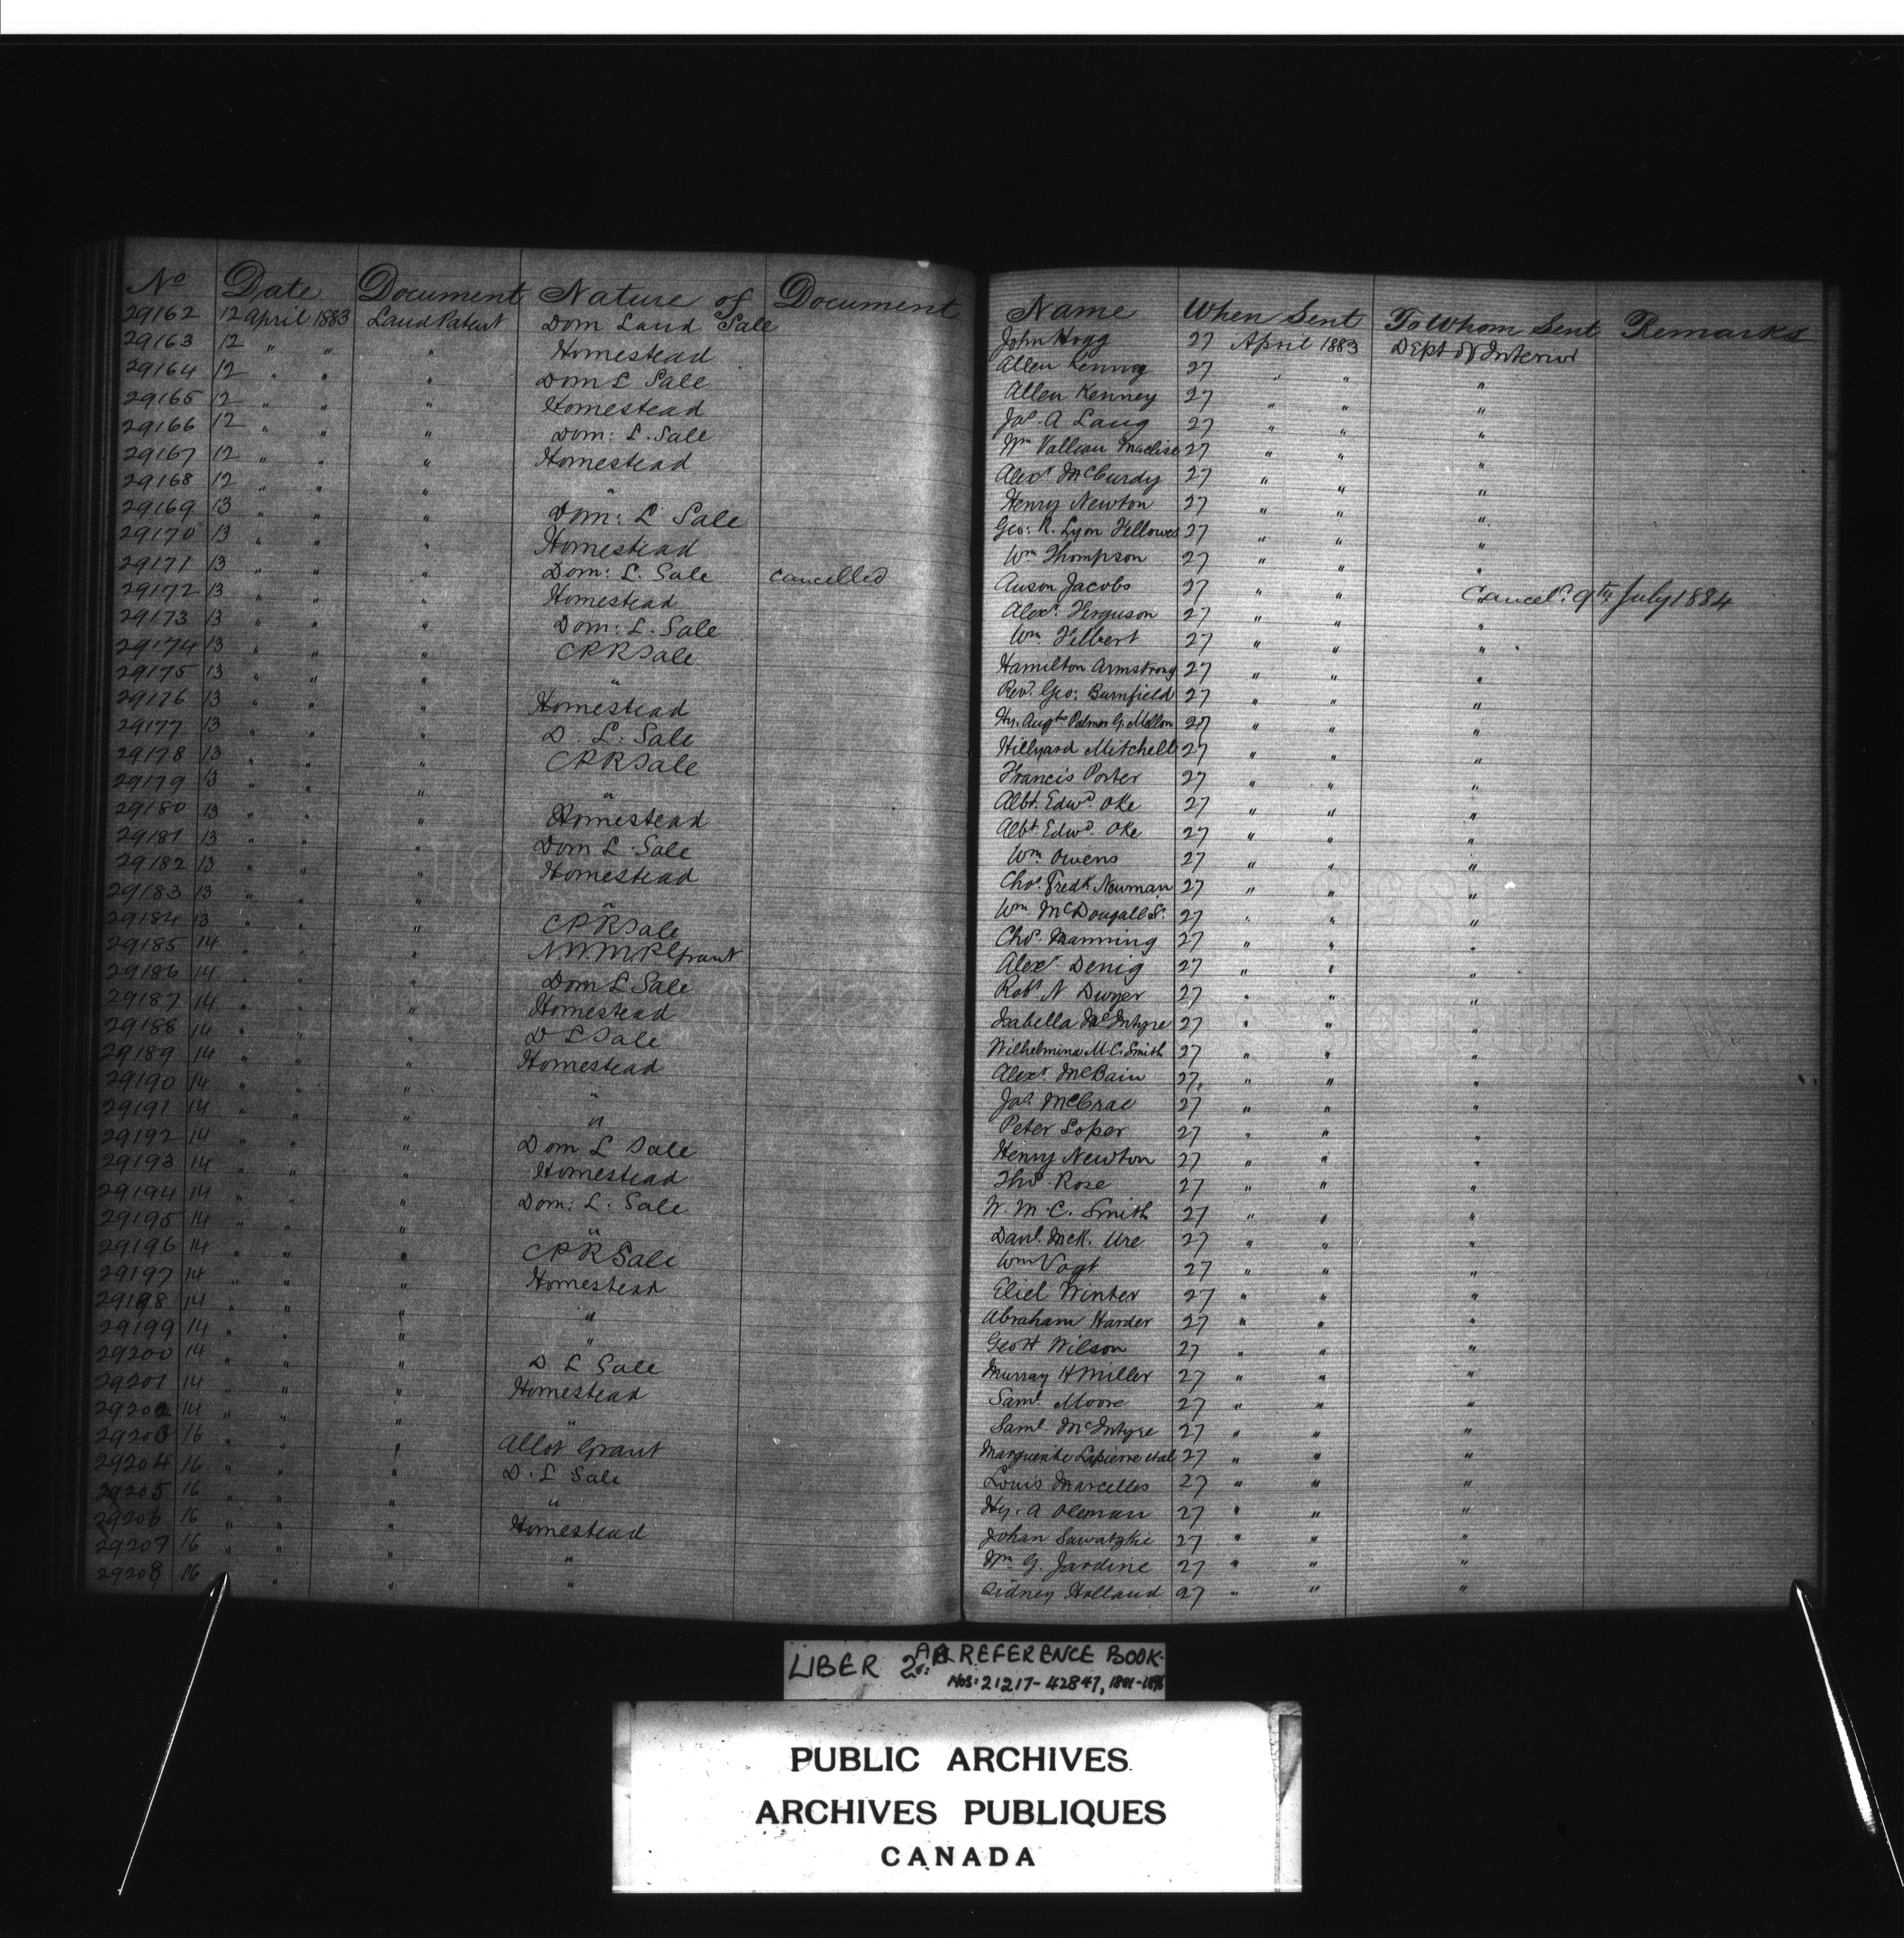 No Date Document Nature of Document Name When Sent To Whom Sent Remarks
29162 12 April 1883 Land Patent Dom Land Sale John Hogg 27 April 1883 Dept of Interior
29163 12 " " " Homestead Allen Kenney 27 " " "
29164 12 " " " Dom L Sale Allen Kenney 27 " " "
29165 12 " " " Homestead Jas. A Lang 27 " " "
29166 12 " " " Dom: L. Sale Wm Valleau Maclise 27 " " "
29167 12 " " " Homestead Alexr McCurdy 27 " " "
29168 12 " " " " Henry Newton 27 " " "
29169 13 " " " Dom: L Sale Geo: R. Lyon Fellowes 27 " " "
29170 13 " " " Homestead Wm Thompson 27 " " "
29171 13 " " " Dom: L. Sale cancelled Anson Jacobs 27 " " Canceld. 9th July 1884
29172 13 " " " Homestead Alexr. Ferguson 27 " " "
29173 13 " " " Dom: L. Sale Wm. Filbert 27 " " "
29174 13 " " " CPR Sale Hamilton Armstrong 27 " " "
29175 13 " " " " Revd. Geo: Burnfield 27 " " "
29176 13 " " " Homestead Hy. Augts Palmer G. Mellon 27 " " "
29177 13 " " " D. L. Sale Hillyard Mitchell 27 " " "
29178 13 " " " CPR Sale Francis Porter 27 " " "
29179 13 " " " " Albt. Edwd. Oke 27 " " "
29180 13 " " " Homestead Albt. Edwd. Oke 27 " " "
29181 13 " " " Dom L. Sale Wm. Owens 27 " " "
29182 13 " " " Homestead Chas. Fredk Neuman 27 " " "
29183 13 " " " " Wm McDougall Sr. 27 " " "
29184 13 " " " CPR Sale Chas. Manning 27 " " "
29185 14 " " " N.W.M.P Grant Alexr Denig 27 " " "
29186 14 " " " Dom L Sale Robt. N Dwyer 27 " " "
29187 14 " " " Homestead Isabella McIntyre 27 " " "
29188 14 " " " D L Sale Wilhelmina M.C. Smith 27 " " "
29189 14 " " " Homestead Alexr McBain 27 " " "
29190 14 " " " " Jas McCrae 27 " " "
29191 14 " " " " Peter Loper 27 " " "
29192 14 " " " Dom L Sale Henry Newton 27 " " "
29193 14 " " " Homestead Thos. Rose 27 " " "
29194 14 " " " Dom: L. Sale W. M. C. Smith 27 " " "
29195 14 " " " " Danl. McK. Ure 27 " " "
29196 14 " " " CPR Sale Wm Vogt 27 " " "
29197 14 " " " Homestead Eliel Winter 27 " " "
29198 14 " " " " Abraham Harder 27 " " "
29199 14 " " " " Geo H Wilson 27 " " "
29200 14 " " " D L Sale Murray H Miller 27 " " "
29201 14 " " " Homestead Saml. Moore 27 " " "
29202 14 " " " " Saml. McIntyre 27 " " "
29203 16 " " " Allot Grant Marguerite Lapierre et al 27 " " "
29204 16 " " " D. L Sale Louis Marcelles 27 " " "
29205 16 " " " " Hy. A Oleman 27 " " "
29206 16 " " " Homestead Johan Sawatzkie 27 " " "
29207 16 " " " " Wm G. Jardine 27 " " "
29208 16 " " " Sidney Holland 27 " " "
LIBER 2A: REFERENCE BOOK-
Nos: 21217-42847, 1881-1896
PUBLIC ARCHIVES
ARCHIVES PUBLIQUES
CANADA